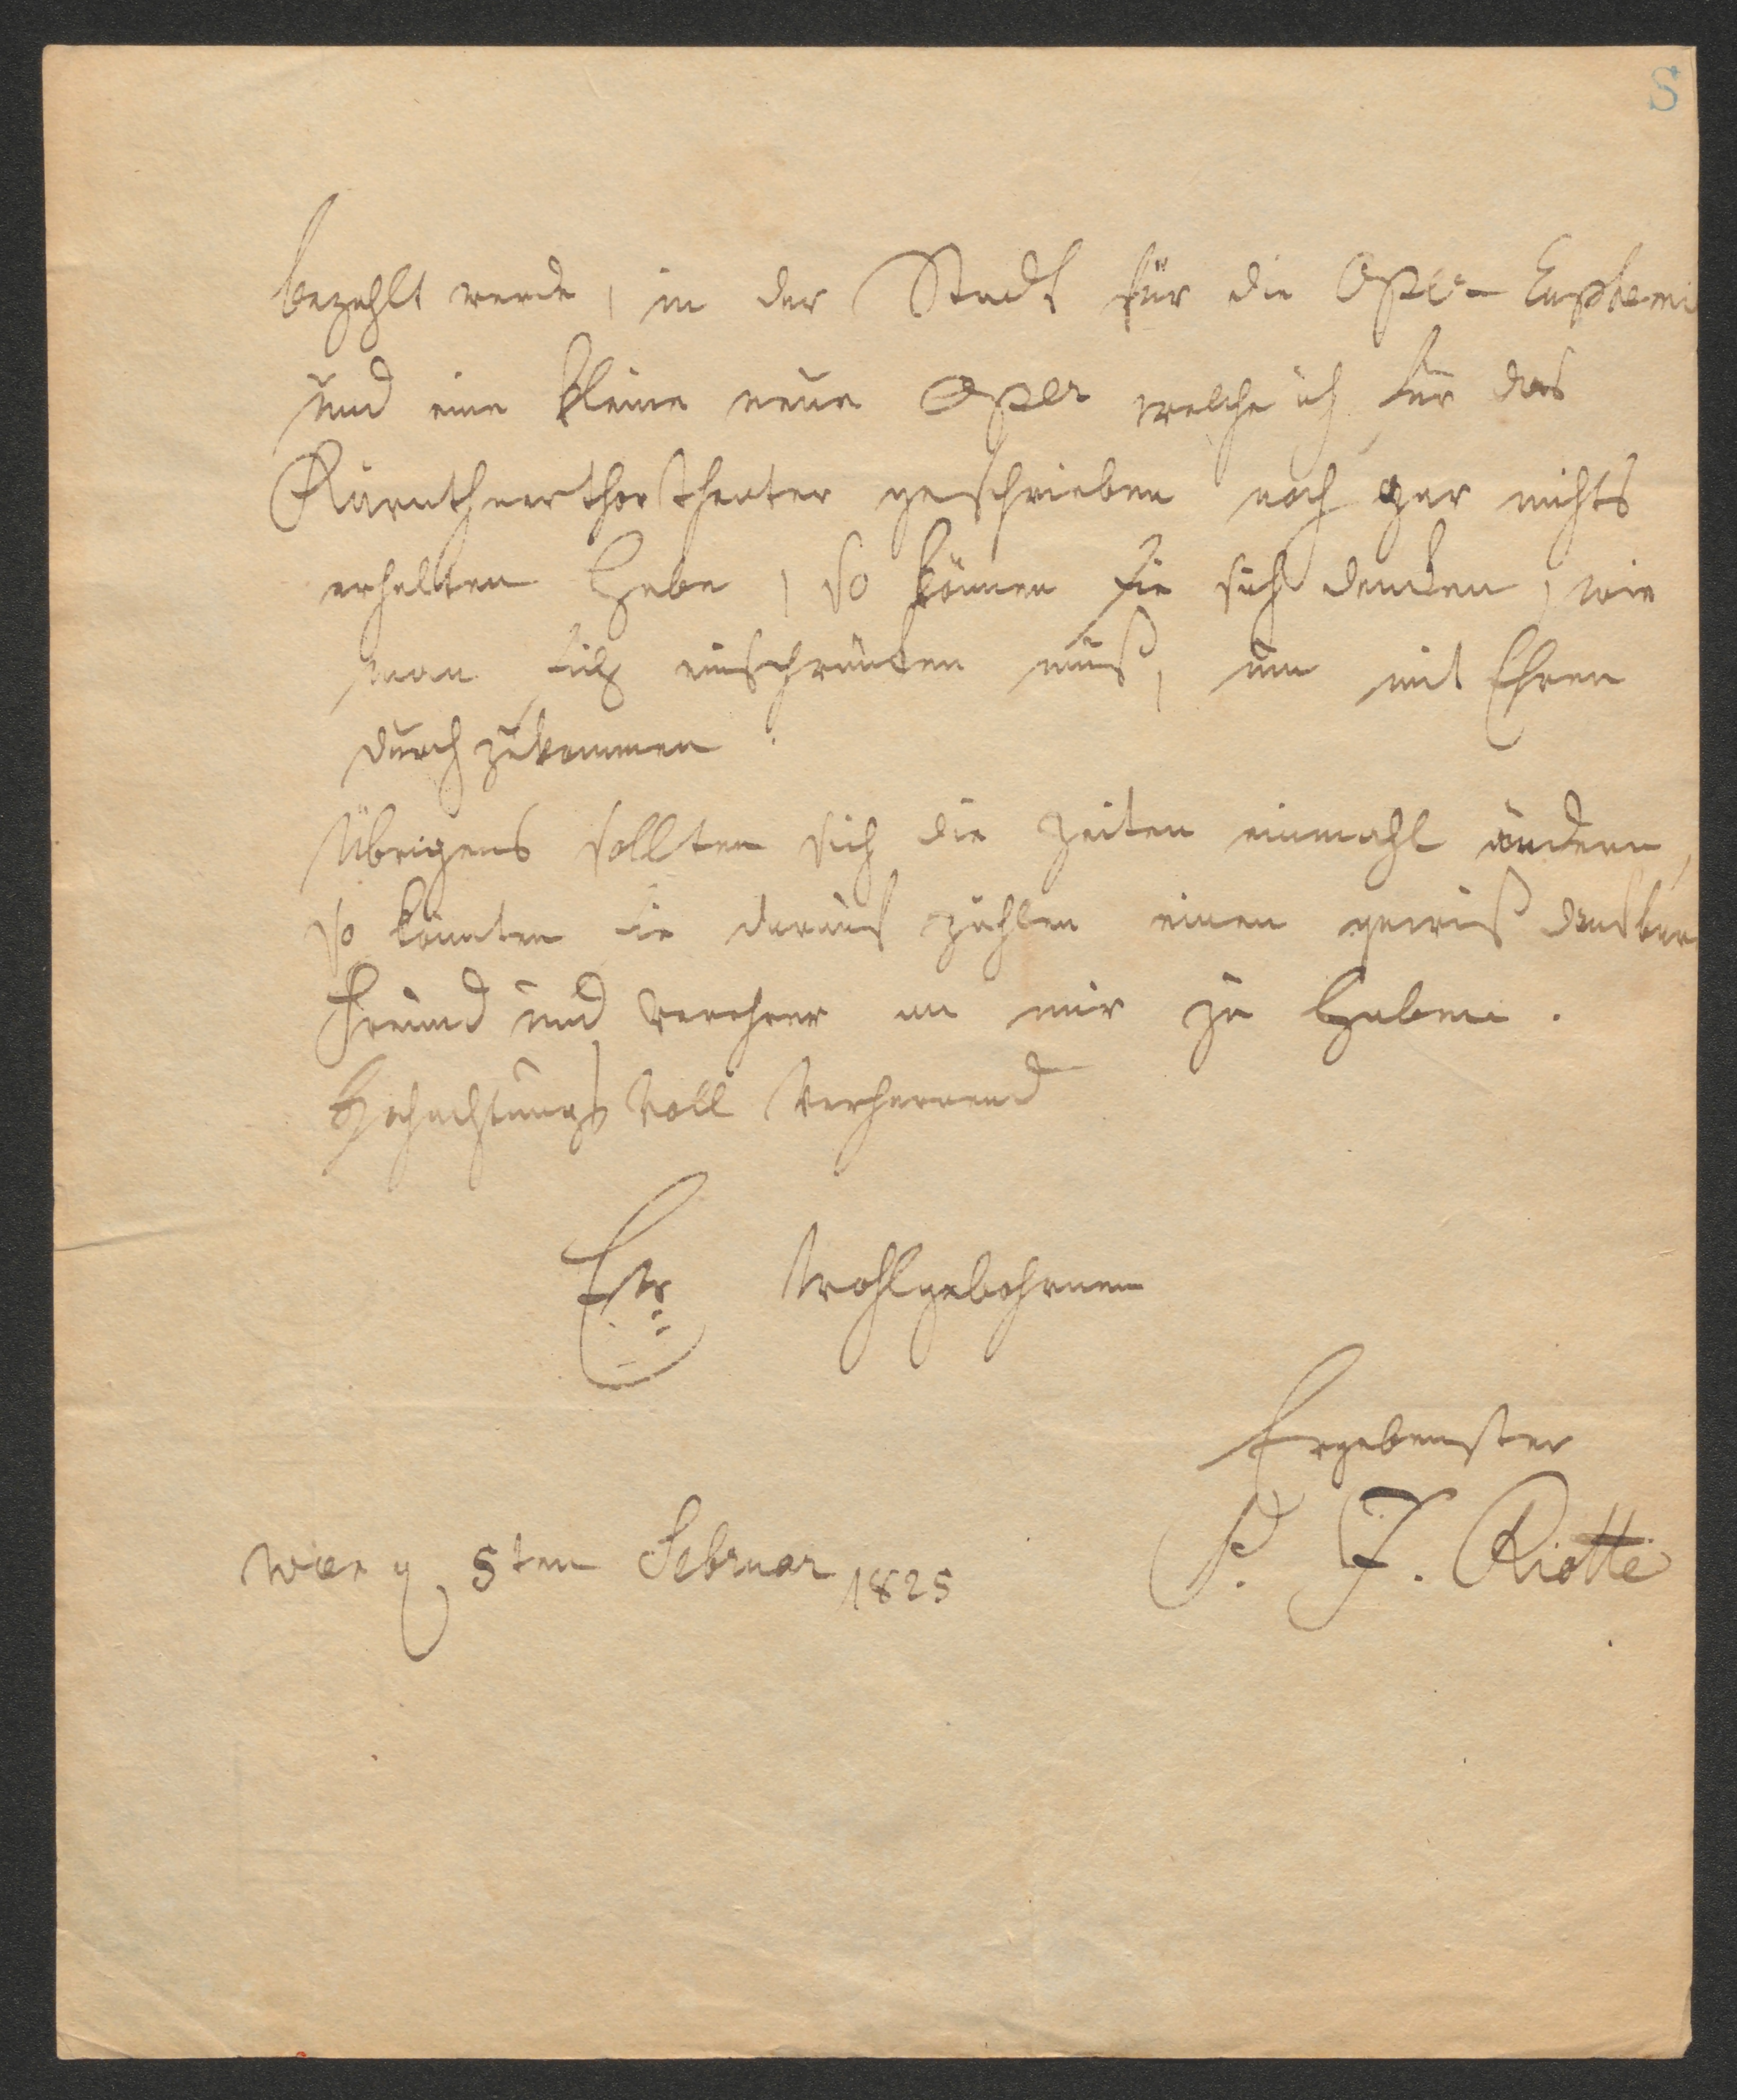 S
bezahlt werde, in der Stadt für die Oper Euphemi
und eine kleine neue Oper welche ich für das
Kärnthnerthortheater geschrieben noch gar nichts
erhalten habe, so können Sie sich denken, wie
man sich einschränken muß, um mit Ehren
durchzukommen.
Übrigens sollten sich die Zeiten einmahl ändern,
so könnten Sie darauf zählen einen gewiß dankbar
Freund und Verehrer an mir zu haben.
Hochachtungsvoll verharrend
Er Wohlgebohrnen
Ergebenster
P. J. Riotte
Wien 5ten Februar 1825